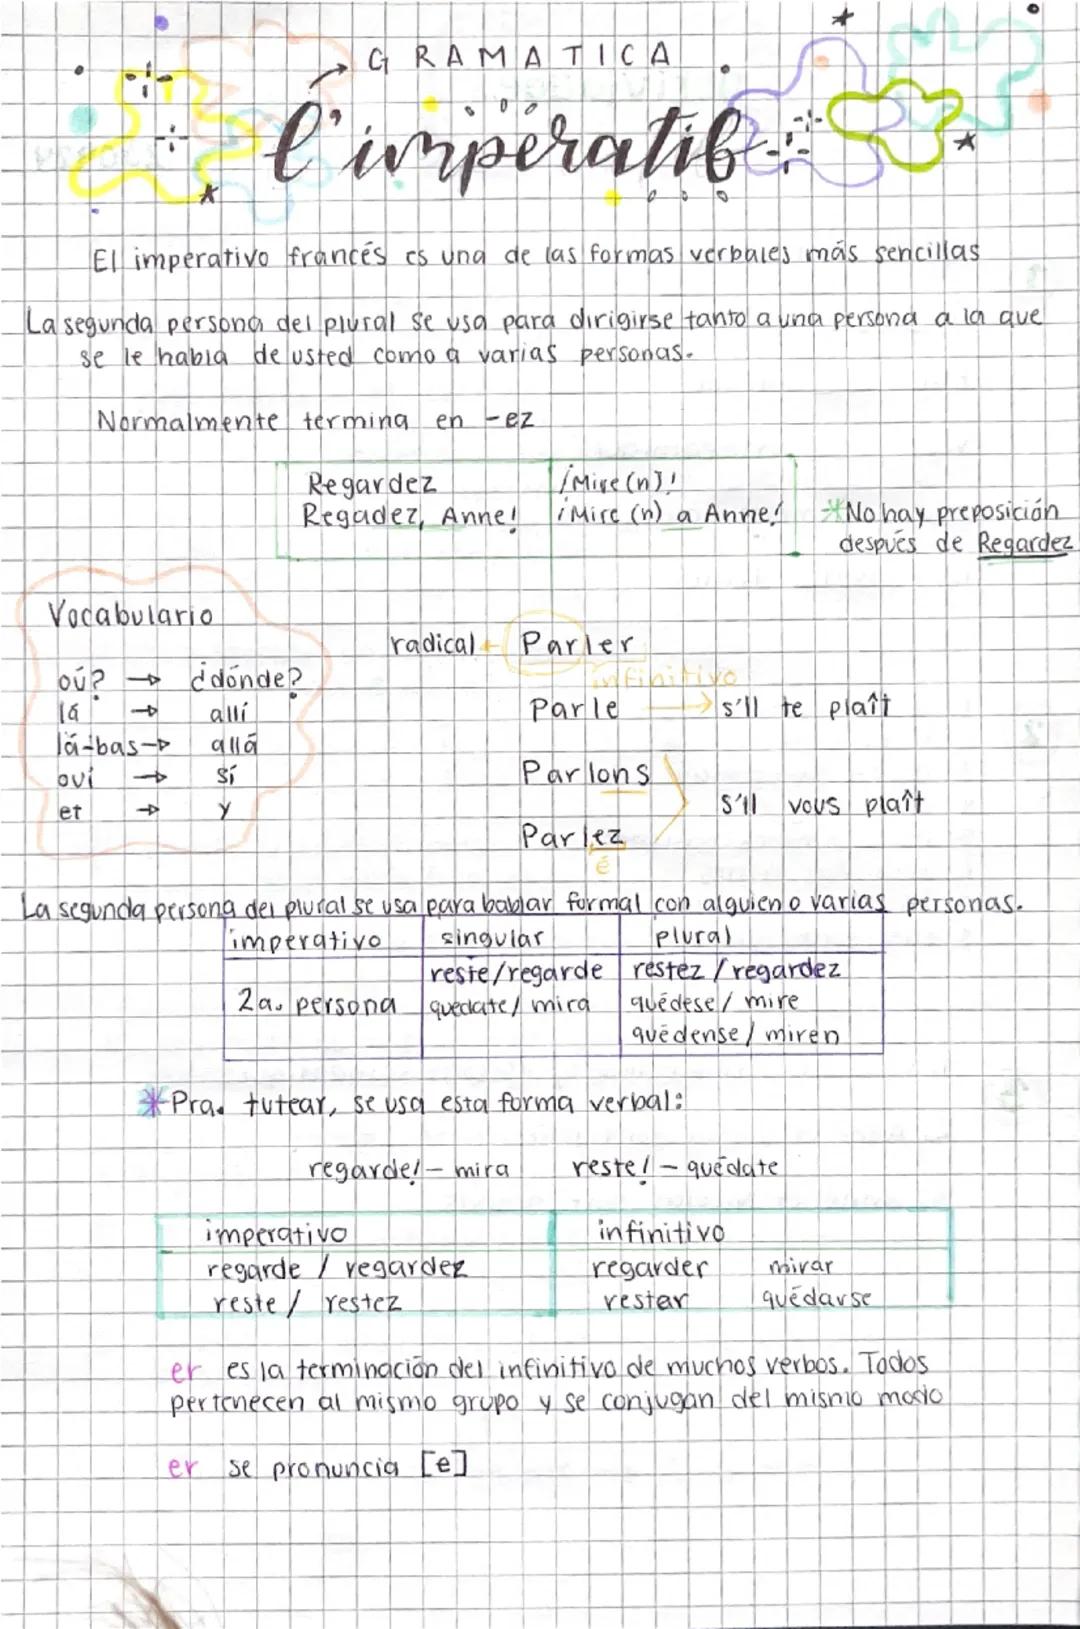 GRAMATICA
l'impératif
El imperativo francés es una de las formas verbales más sencillas
La segunda persona del plural se usa para dirigirse tanto a una persona a la que
se le habla de usted como a varias personas.
Normalmente termina en -ez
Regardez ¡Mire(n)!
Regadez, Anne! ¡Mire (n) a Anne!
*No hay preposición
después de Regardez
Vocabulario
oú? → ¿dónde?
lá → allí
lá-bas → allá
oui → sí
et → y
radical ← Parler
infinitivo
Parle → s'll te plaît
Parlons
s'll vous plaît
Parlez
é
La segunda persona del plural se usa para bablar formal con alguien o varias personas.
imperativo singular plural
reste/regarde restez/regardez
2a. persona quedate/mira quédese/mire
quédense/miren
*Pra. tutear, se usa esta forma verbal:
regarde! - mira reste! - quédate
imperativo infinitivo
regarde / regardez regarder mirar
reste / restez rester quédarse
er es la terminación del infinitivo de muchos verbos. Todos
pertenecen al mismo grupo y se conjugan del mismo modo
er se pronuncia [e]